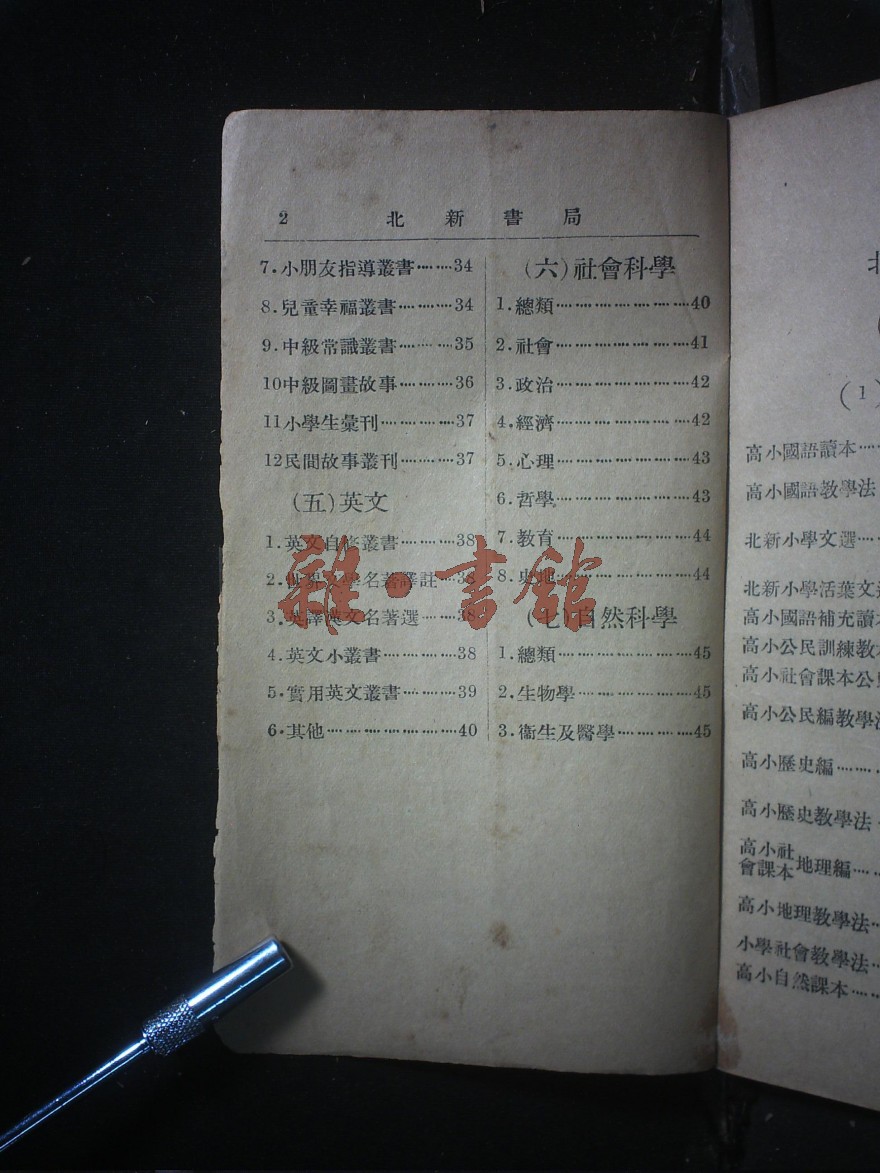 2 北新書局
7.小朋友指導叢書·······34
8.兒童幸福叢書·······34
9.中級常識叢書·······35
10中級圖畫故事·······36
11小學生彙刊·······37
12民間故事叢刊·······37
(五)英文
1.英文自修叢書·······38
2.世界文學名著譯註···38
3.英譯漢文名著選·····38
4.英文小叢書·······38
5.實用英文叢書·······39
6.其他·······40
(六)社會科學
1.總類·······40
2.社會·······41
3.政治·······42
4.經濟·······42
5.心理·······43
6.哲學·······43
7.教育·······44
8.史地·······44
(七)自然科學
1.總類·······45
2.生物學·······45
3.衞生及醫學·······45
雜·書館
(1)
高小國語讀本····
高小國語教學法
北新小學文選····
北新小學活葉文
高小國語補充讀
高小公民訓練教
高小社會課本公
高小公民編教學
高小歷史編····
高小歷史教學法
高小社會課本地理編····
高小地理教學法··
小學社會教學法··
高小自然課本····